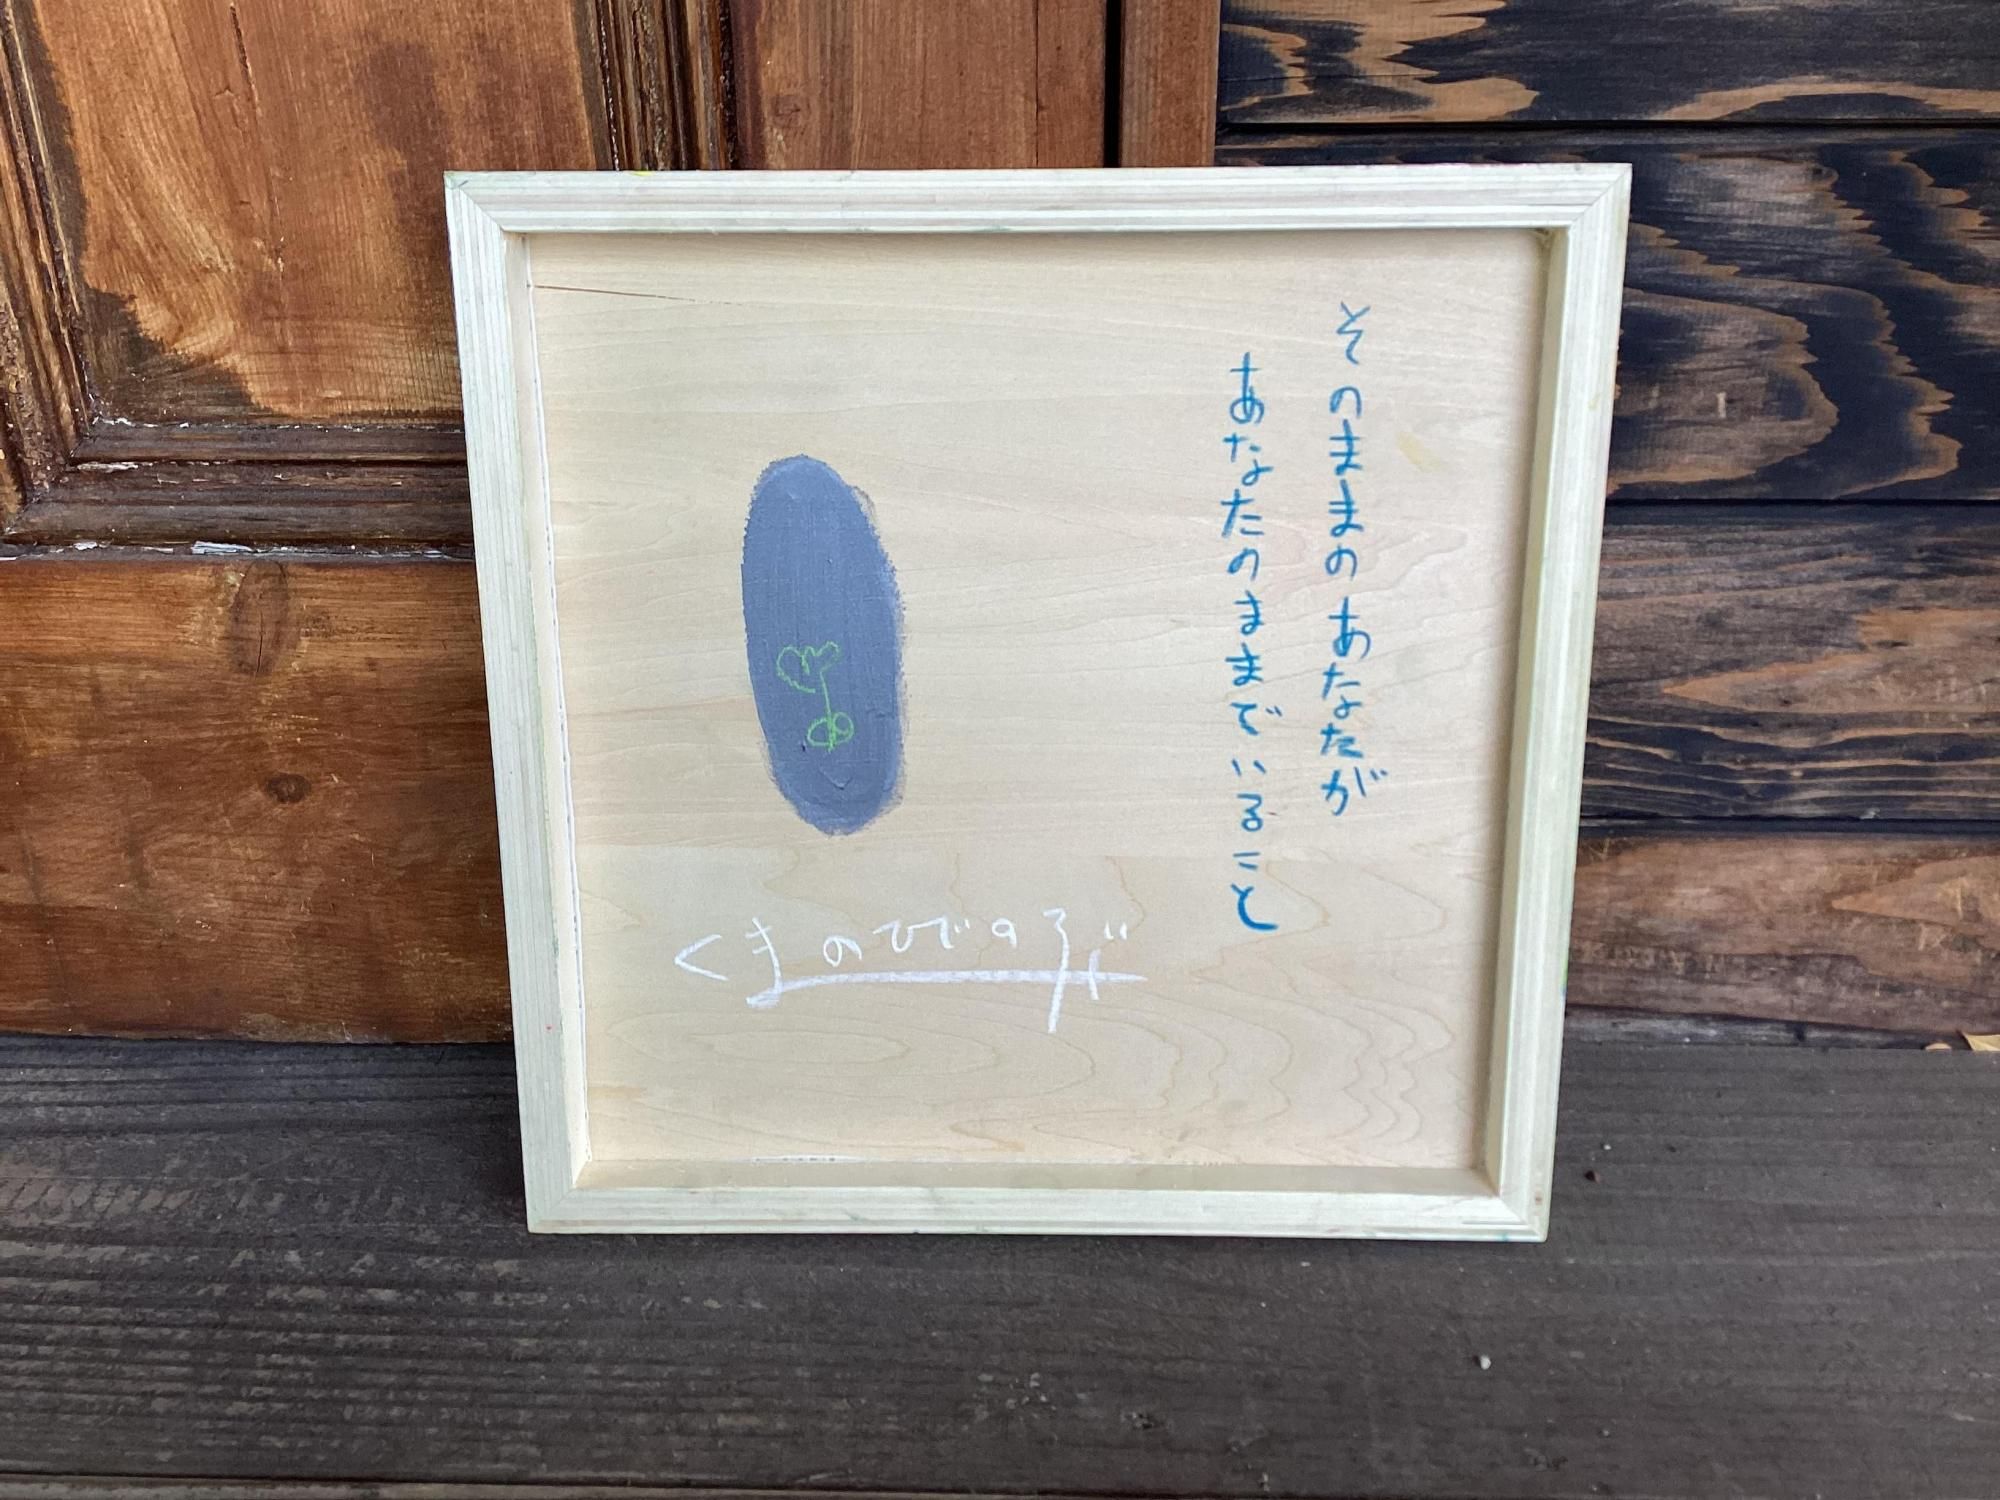 そのままのあなたが
あなたのままでいること
くまのひでのぶ